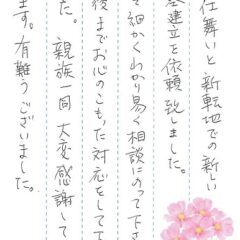 仕舞いと新転地での新しい
墓建立を依頼致しました。
て細かくわかり易く相談にのって下さ
後までお心のこもった対応をして下
た。親族一同大変感謝して
ます。有難うございました。